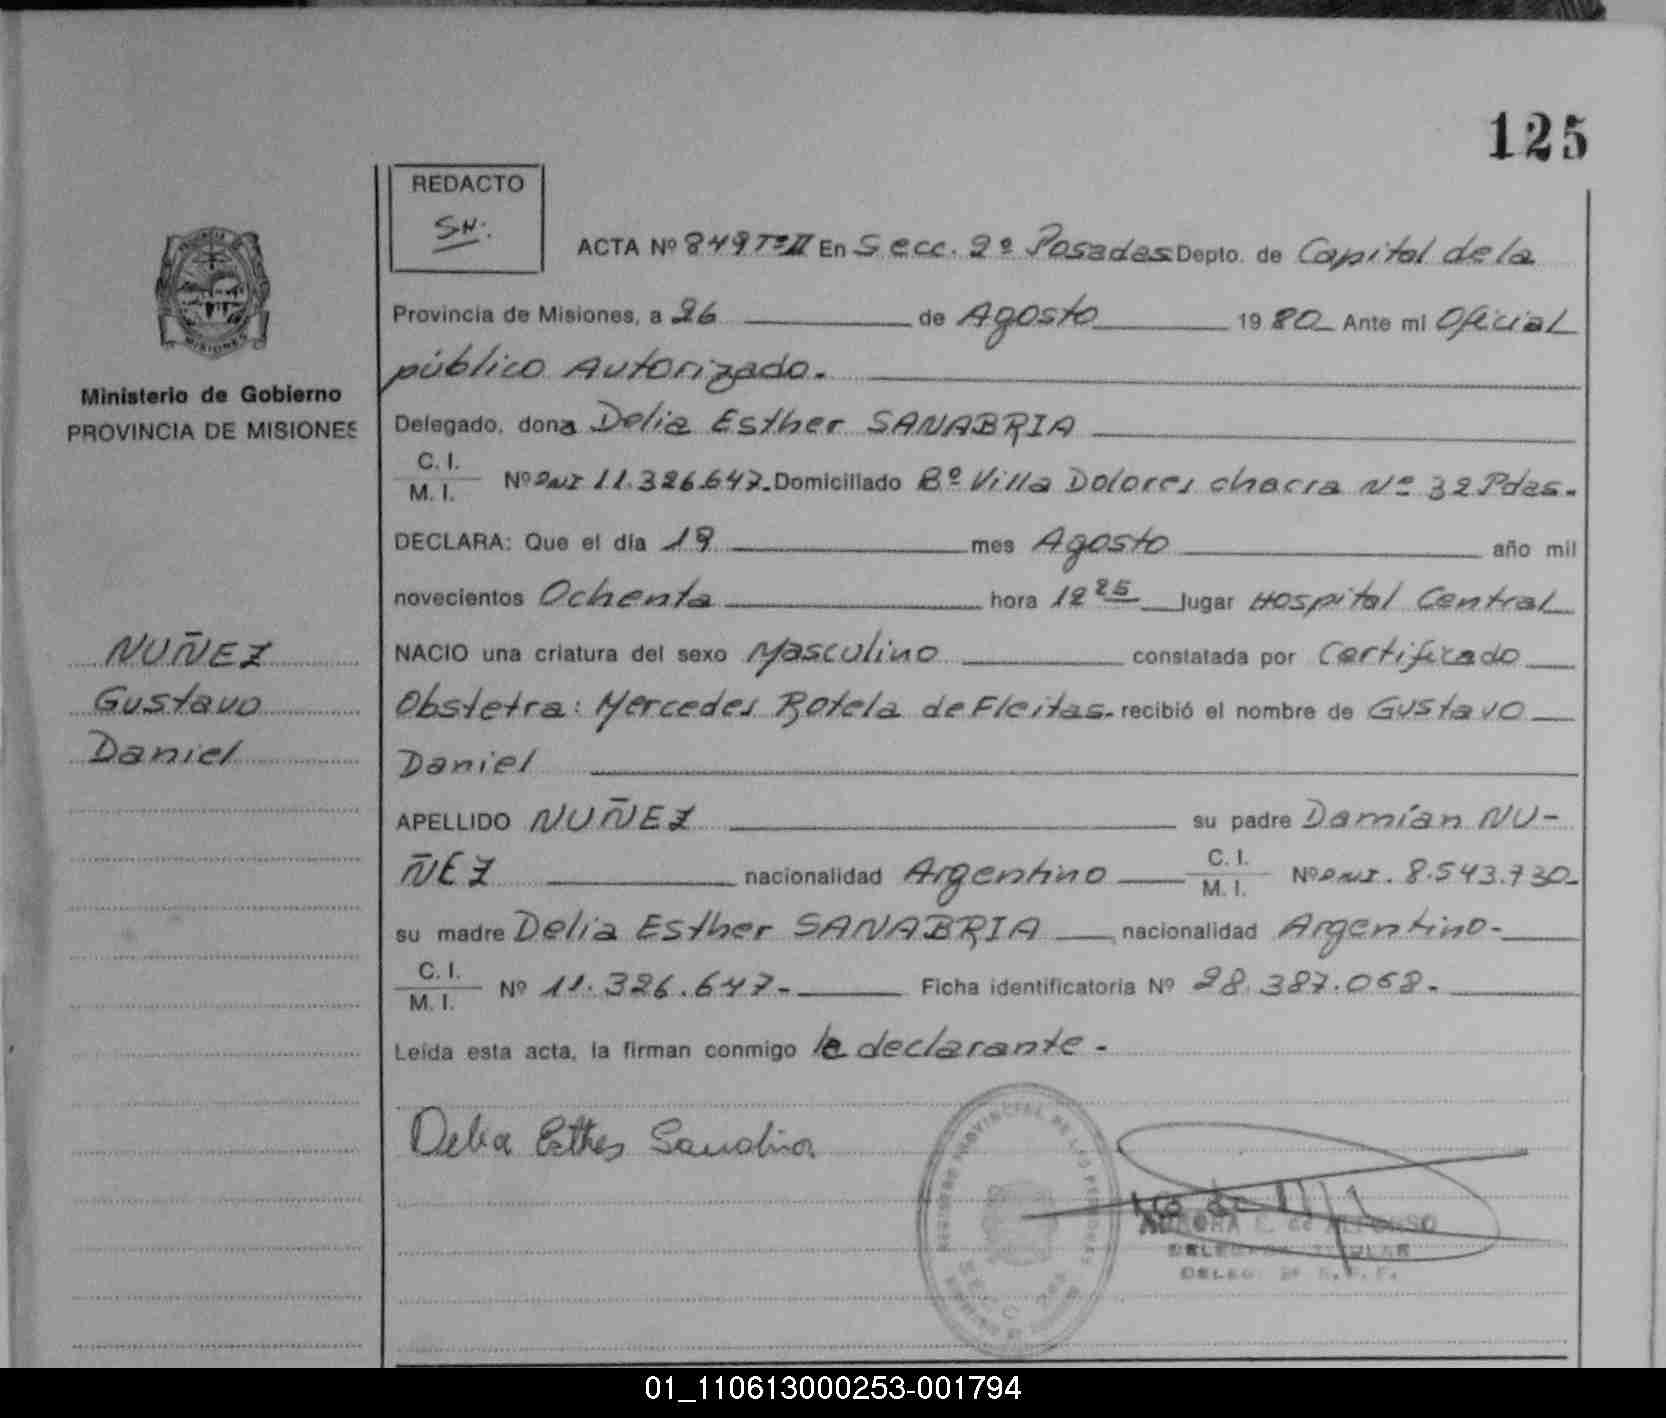 125
REDACTO
SN:
ACTA Nº 849 Tº II En Secc. 2º Posadas Depto. de Capital de la
Provincia de Misiones, a 26 de Agosto 1980 Ante mi Oficial
público Autorizado.
Ministerio de Gobierno
PROVINCIA DE MISIONES
Delegado, dona Delia Esther SANABRIA
C. I.
M. I. Nº DNI 11.326.647. Domiciliado Bº Villa Dolores chacra Nº 32 Pdas.
DECLARA: Que el día 19 mes Agosto año mil
novecientos Ochenta hora 12 25 lugar Hospital Central
NUÑEZ
Gustavo
Daniel
NACIO una criatura del sexo Masculino constatada por Certificado
Obstetra: Mercedes Rotela de Fleitas. recibió el nombre de Gustavo
Daniel
APELLIDO NUÑEZ su padre Damían NU-
ÑEZ nacionalidad Argentino C. I. M. I. Nº DNI. 8.543.730-
su madre Delia Esther SANABRIA nacionalidad Argentino-
C. I.
M. I. Nº 11.326.647- Ficha identificatoria Nº 28.387.068.
Leída esta acta, la firman conmigo la declarante-
Delia Esther Sanabria
REGISTRO PROVINCIAL DE LAS PERSONAS
AURORA E. de ALFONSO
DELEGADA TITULAR
DELEG. 2ª
01_110613000253-001794